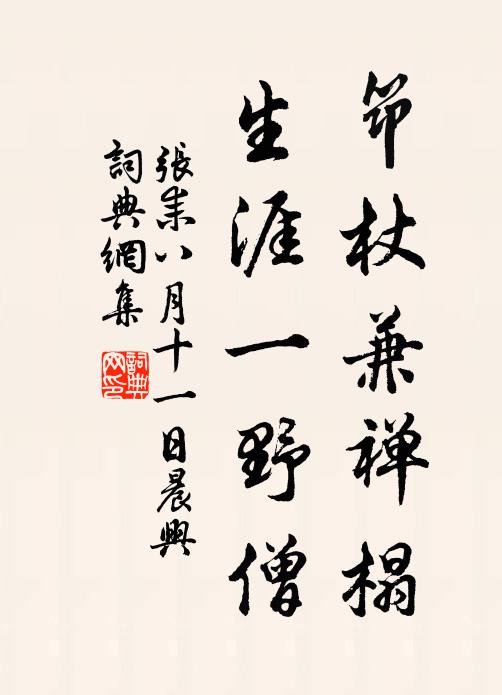 筇杖兼禅榻
生涯一野僧
張耒八月十一日晨興
詞典網集
詞典
网印